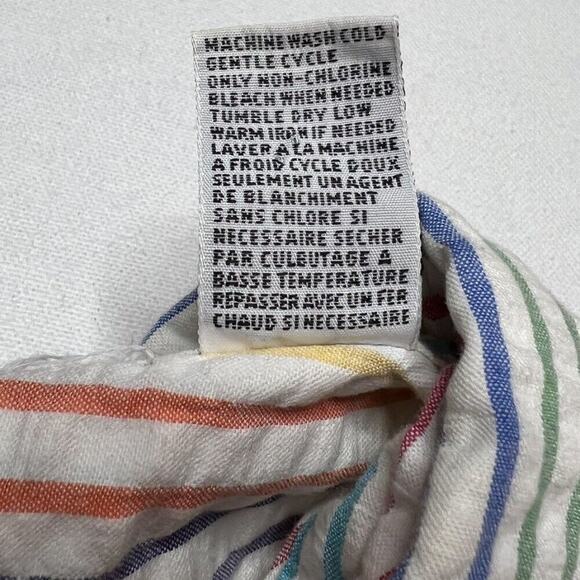 MACHINE WASH COLD
GENTLE CYCLE
ONLY NON-CHLORINE
BLEACH WHEN NEEDED
TUMBLE DRY LOW
WARM IRON IF NEEDED
LAVER A LA MACHINE
A FROID CYCLE DOUX
SEULEMENT UN AGENT
DE BLANCHIMENT
SANS CHLORE SI
NECESSAIRE SECHER
PAR CULBUTAGE A
BASSE TEMPERATURE
REPASSER AVEC UN FER
CHAUD SI NECESSAIRE